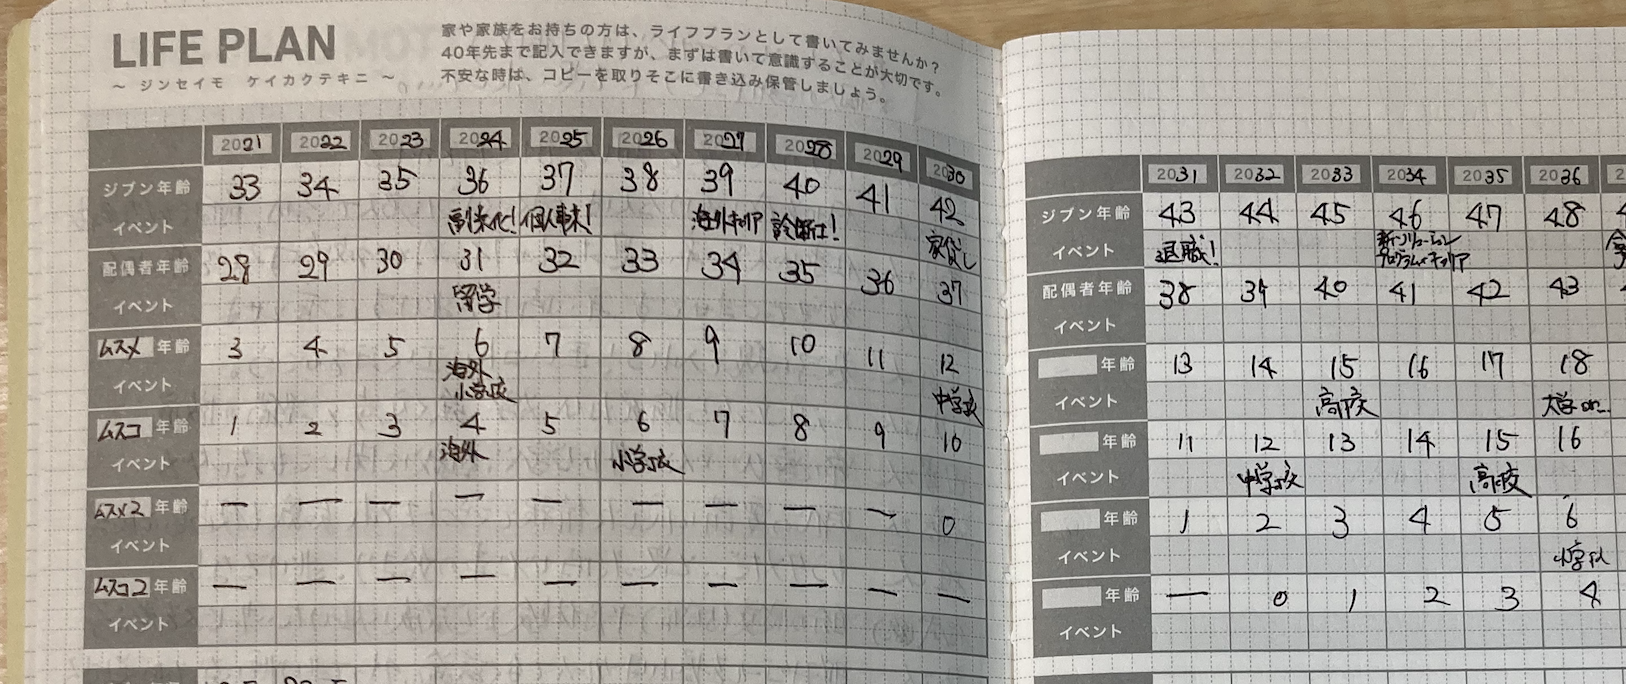 LIFE PLAN
～ ジンセイモ ケイカクテキニ ～
家や家族をお持ちの方は、ライフプランとして書いてみませんか？
40年先まで記入できますが、まずは書いて意識することが大切です。
不安な時は、コピーを取りそこに書き込み保管しましょう。
2021 2022 2023 2024 2025 2026 2027 2028 2029 2030
ジブン年齢 33 34 35 36 37 38 39 40 41 42
イベント 副業化! 個人事業! 海外キャリア 診断士! 家貸し
配偶者年齢 28 29 30 31 32 33 34 35 36 37
イベント 留学
ムスメ 年齢 3 4 5 6 7 8 9 10 11 12
イベント 海外 小学校 中学校
ムスコ 年齢 1 2 3 4 5 6 7 8 9 10
イベント 海外 小学校
ムスメ2 年齢 ー ー ー ー ー ー ー ー ー 0
イベント
ムスコ2 年齢 ー ー ー ー ー ー ー ー ー ー
イベント
2031 2032 2033 2034 2035 2036 2
ジブン年齢 43 44 45 46 47 48 4
イベント 退職! 新ソリューション プログラム×キャリア
配偶者年齢 38 39 40 41 42 43
イベント
年齢 13 14 15 16 17 18
イベント 高校 大学or..
年齢 11 12 13 14 15 16
イベント 中学校 高校
年齢 1 2 3 4 5 6
イベント 小学校
年齢 ー 0 1 2 3 4
イベント